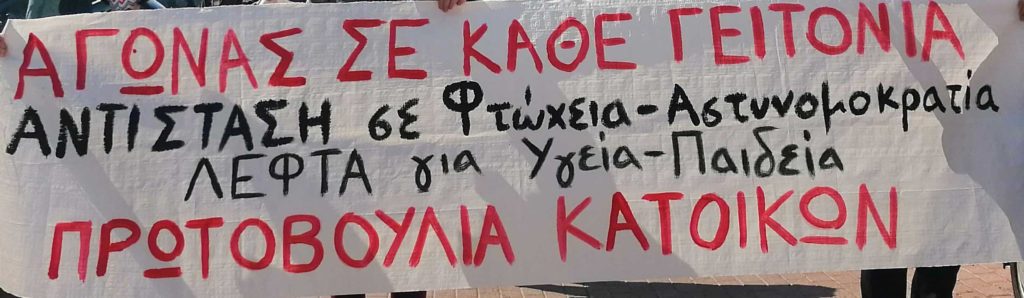 ΑΓΩΝΑΣ ΣΕ ΚΑΘΕ ΓΕΙΤΟΝΙΑ
ΑΝΤΙΣΤΑΣΗ σε Φτώχεια-Αστυνομοκρατία
ΛΕΦΤΑ για Υγεία-Παιδεία
ΠΡΩΤΟΒΟΥΛΙΑ ΚΑΤΟΙΚΩΝ